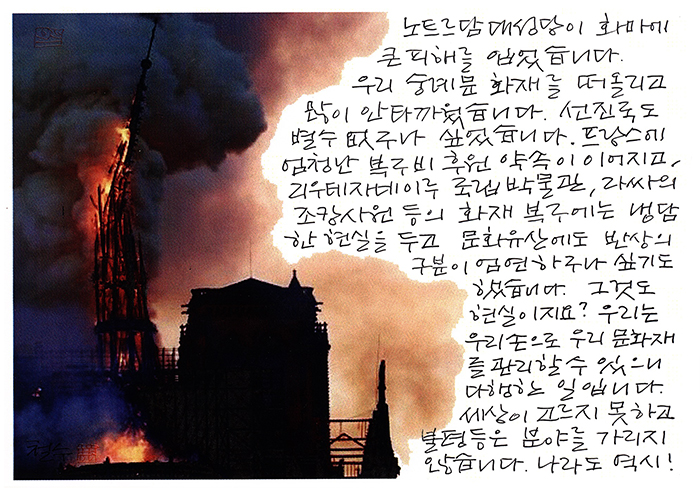 노트르담 대성당이 화마에
큰 피해를 입었습니다.
우리 숭례문 화재를 떠올리고
많이 안타까웠습니다. 선진국도
별수 없구나 싶었습니다. 프랑스에
엄청난 복구비 후원 약속이 이어지고,
리우데자네이루 국립박물관, 라싸의
조캉사원 등의 화재 복구에는 냉담
한 현실을 두고 문화유산에도 반상의
구분이 엄연하구나 싶기도
했습니다. 그것도
현실이지요? 우리는
우리손으로 우리 문화재
를 관리할 수 있으니
다행한 일입니다.
세상이 고르지 못하고
불평등은 분야를 가리지
않습니다. 나라도 역시!